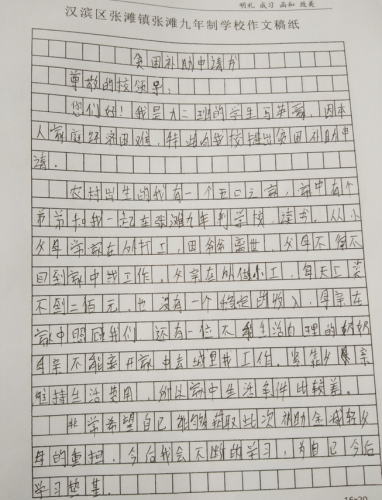 明礼 成习 函和 致美
汉滨区张滩镇张滩九年制学校作文稿纸
贫困补助申请书
尊敬的校领导：
您们好！我是九二班的学生，因本
人家庭经济困难，特此向我校提出贫困补助申
请。
农村出生的我有一个五口之家，家中有个
弟弟和我一起在张滩九年制学校读书，从小
父母亲都在外打工，因爷爷离世，父母不得不
回到家中找工作，父亲在外做小工，每天工资
不到二佰元，也没有一个稳定的收入，母亲在
家中照顾我们 还有一位不能生活自理的奶奶
母亲不能离开家中去城里找工作，靠父亲
维持生活费用，所以家中生活条件比较差。
此学希望自己能够获取此次补助金减轻父
母的重担，今后我会不断的学习，为自己今后
学习垫基。
15×20